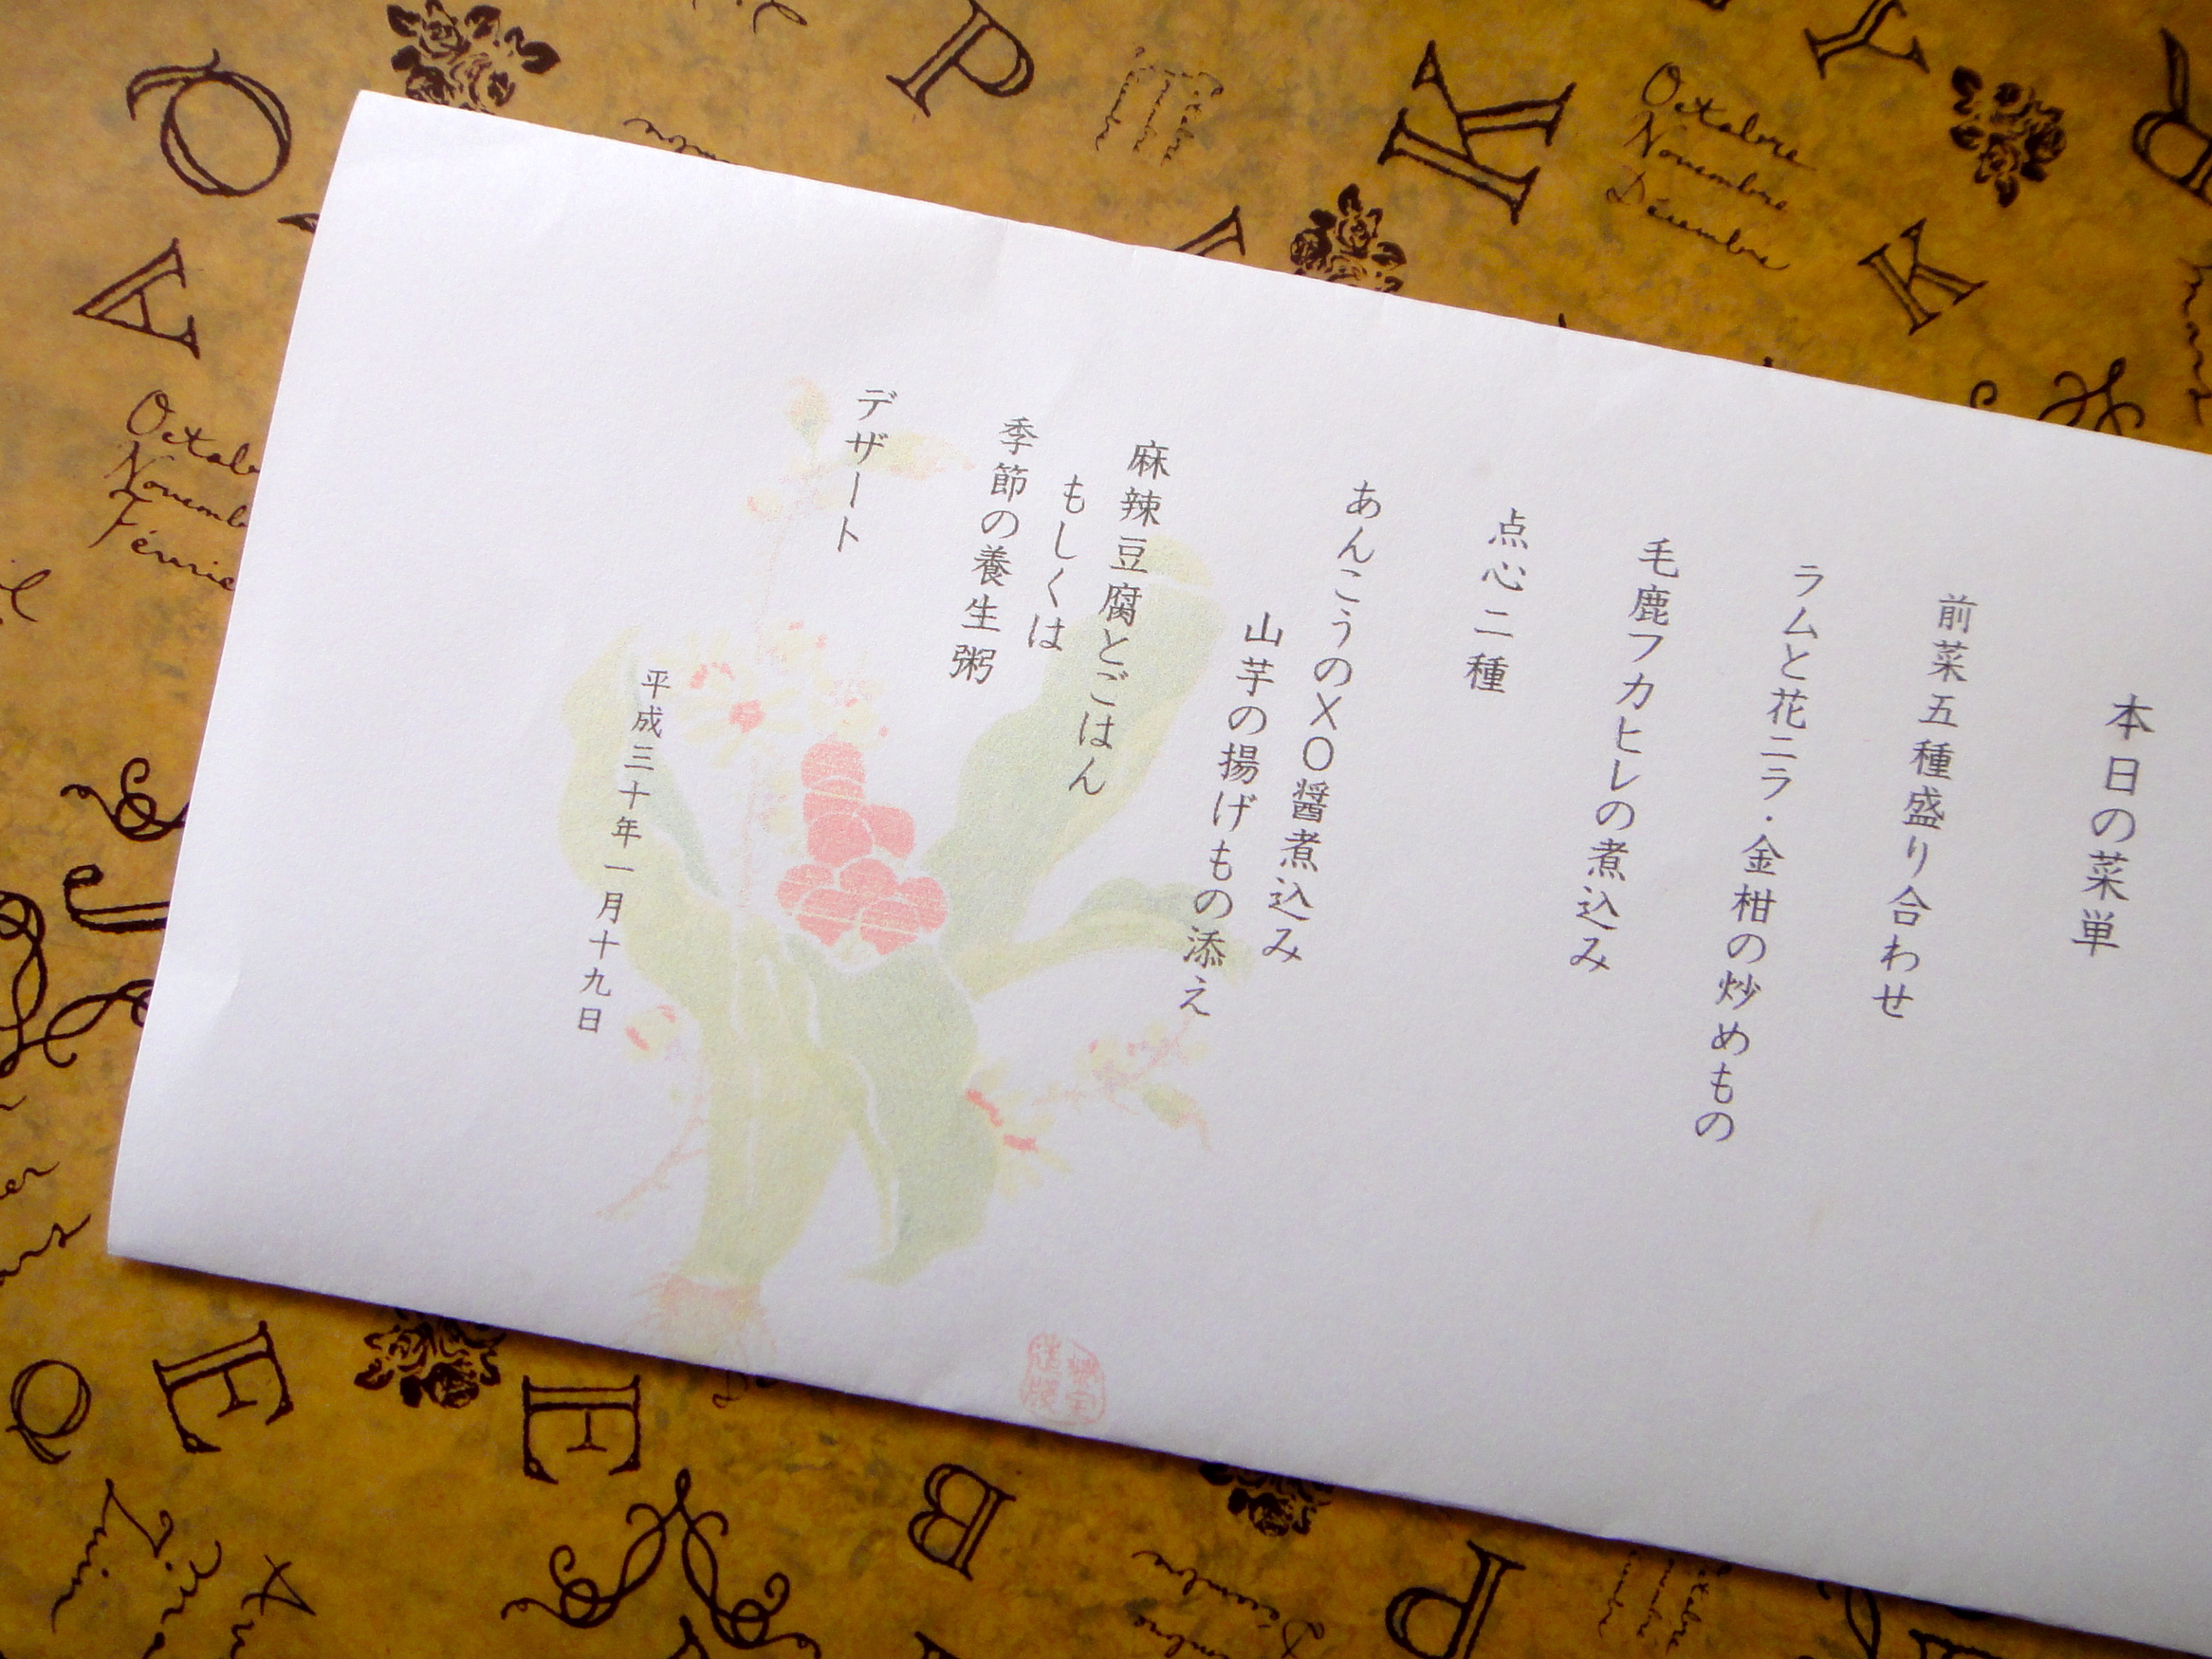 本日の菜単
前菜五種盛り合わせ
ラムと花ニラ・金柑の炒めもの
毛鹿フカヒレの煮込み
点心二種
あんこうのXO醤煮込み
山芋の揚げもの添え
麻辣豆腐とごはん
もしくは
季節の養生粥
デザート
平成三十年一月十九日
O
P
K
Y
Octobre
Novembre
Décembre
K
A
E
E
B
P